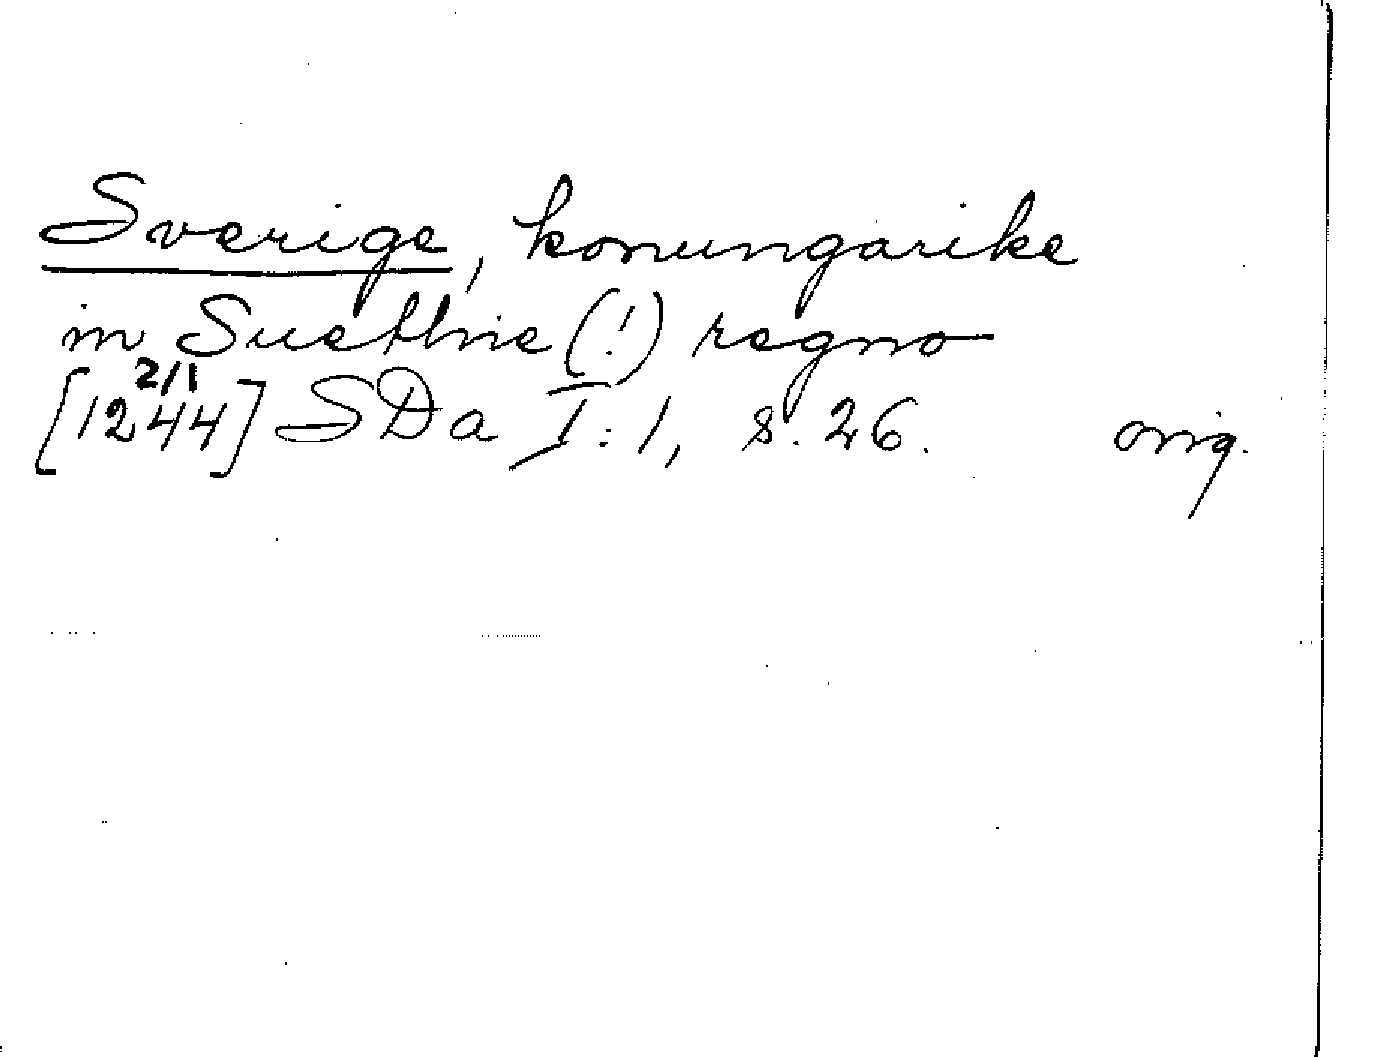 Sverige, konungarike
in Suethie (!) regno
2/1
[1244] SDa I:1, s. 26. orig.